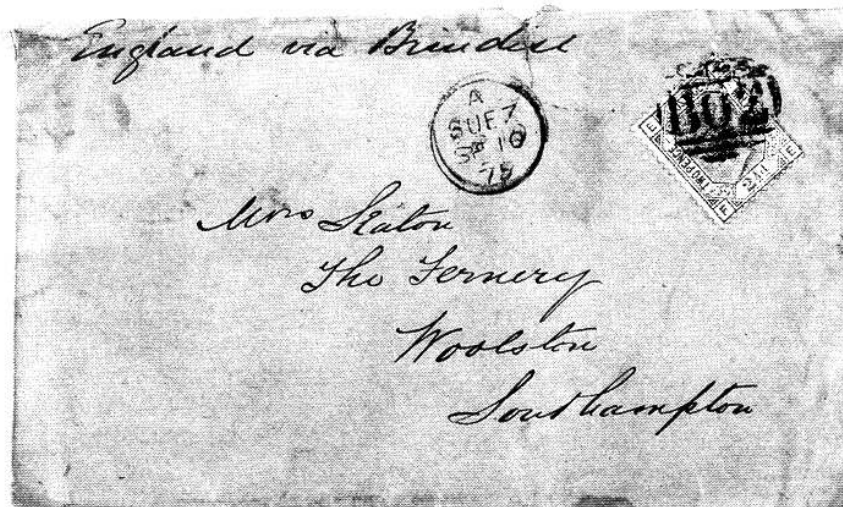 England via Brindisi
A
SUEZ
SP 10
B02
TWO PENCE
E
E
F
Mrs Seaton
The Fernery
Woolston
Southampton